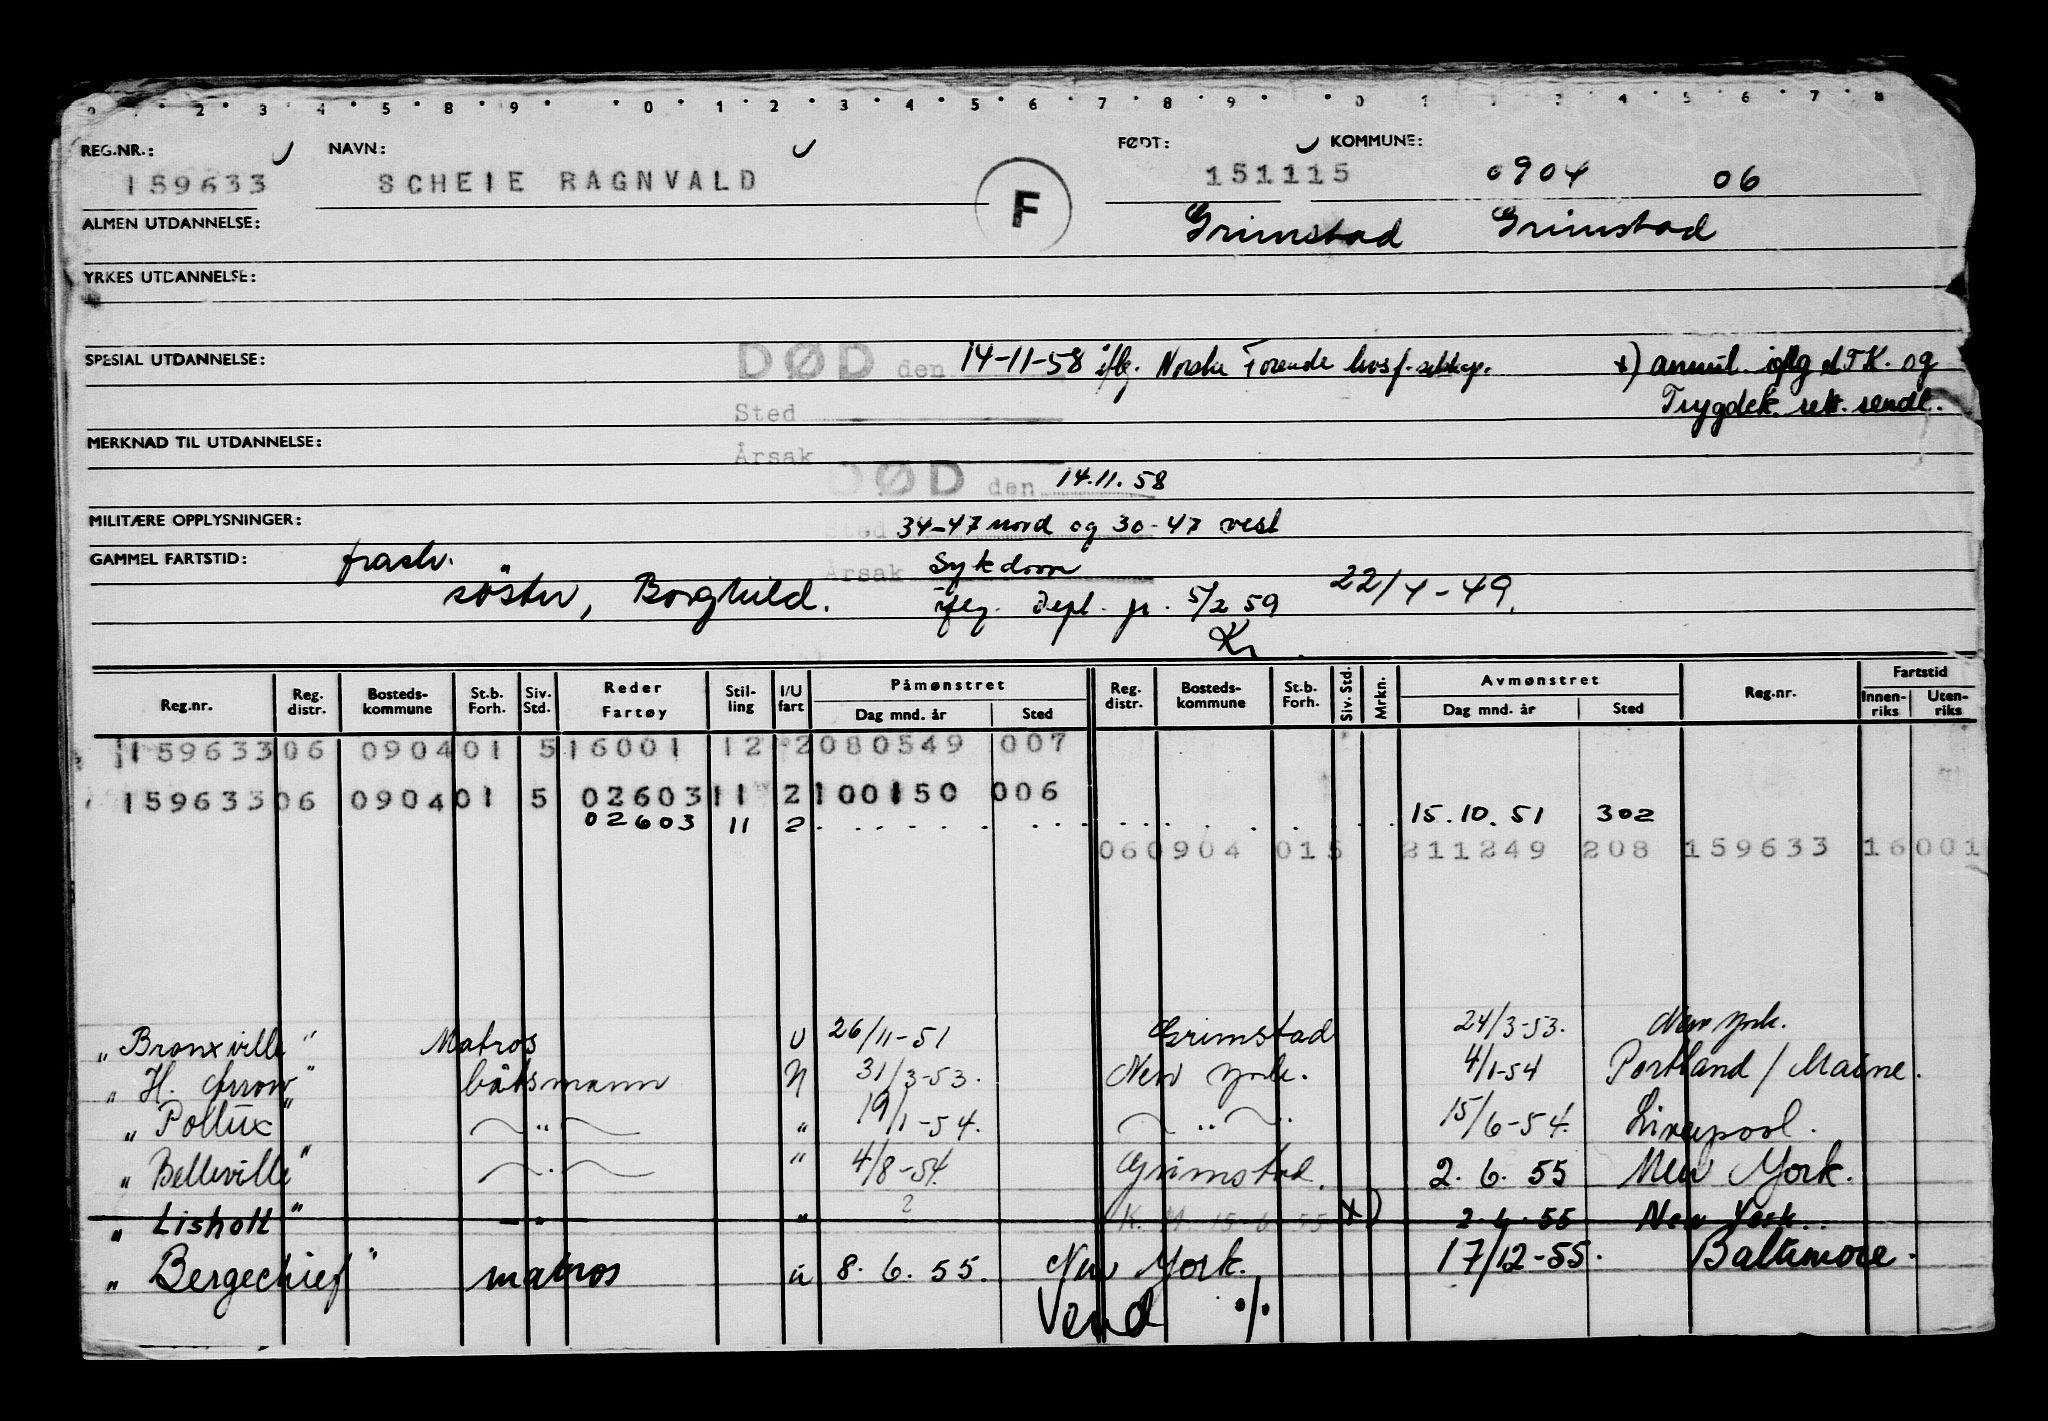 2 3 4 5 8 9 0 1 2 3 4 5 6 7 8 9 0 4 5 6 7 8
REG.NR.: NAVN: FØDT: KOMMUNE:
159633 SCHEIE RAGNVALD F 151115 0904 06
ALMEN UTDANNELSE: Grimstad Grimstad
YRKES UTDANNELSE:
SPESIAL UTDANNELSE: DØD den 14-11-58 iflg. Norske Forende livsf. selskap. x) annul. iflg
og
Sted Trygdek. rett. sendt.
MERKNAD TIL UTDANNELSE:
Årsak
DØD den 14.11.58
MILITÆRE OPPLYSNINGER: Sted 34-47 nord og 30-47 vest
GAMMEL FARTSTID: Årsak Sykdom
søster, Borghild. iflg. Dept. 5/2 59 22/4-49.
Kr
Reg.nr. Reg. distr. Bosteds-kommune St.b. Forh. Siv. Std. Reder Fartøy Stil-ling I/U fart Påmønstret Dag mnd. år Sted Reg. distr. Bosteds-kommune St.b. Forh. Siv. Std. Mrkn. Avmønstret Dag mnd. år Sted Reg.nr. Fartstid Innen-riks Uten-riks
159633 06 0904 01 5 16001 12 2 080549 007
159633 06 0904 01 5 02603 11 2 100150 006
02603 11 2 15.10.51 302
06 0904 01 5 211249 208 159633 16001
"Bronxville" Matros U 26/11-51 Grimstad 24/3-53. New York.
"H. Arrow" båtsmann U 31/3-53. New York. 4/1-54 Portland / Maine.
"Pollux" " " 19/1-54. " 15/6-54. Liverpool.
"Belleville" " " 4/8-54. Grimstad. 2.6.55 New York.
"Lisholt" " " ? K. M 15-6-55 x) 2.6.55 New York.
"Bergechief" matros u 8.6.55. New York. 17/12-55. Baltimore.
Vend ./.